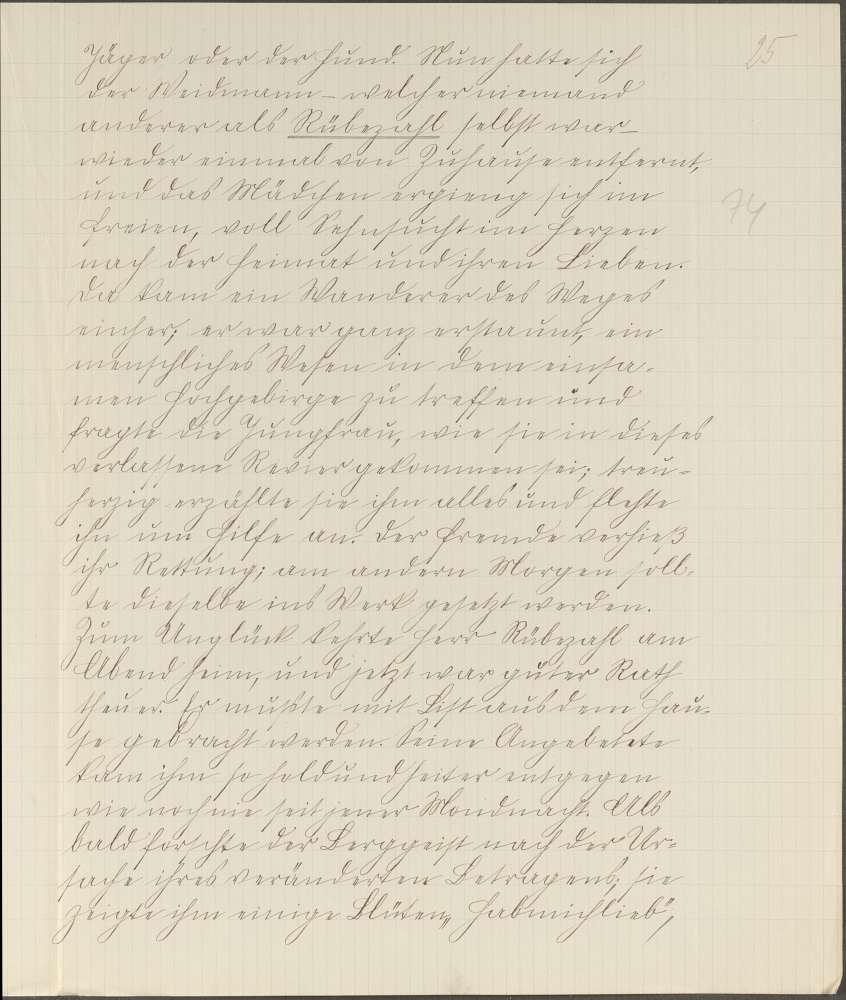 25
Jäger oder der Hund. Nun hatte sich
der Weidmann – welcher niemand
anderer als Rübezahl selbst war –
wieder einmal von Zuhause entfernt,
und das Mädchen ergieng sich im
Freien, voll Sehnsucht im Herzen
74
nach der Heimat und ihren Lieben.
Da kam ein Wanderer des Weges
einher; er war ganz erstaunt, ein
menschliches Wesen in dem einsa-
men Hochgebirge zu treffen und
fragte die Jungfrau, wie sie in dieses
verlassene Revier gekommen sei; treu-
herzig erzählte sie ihm alles und flehte
ihn um Hilfe an. Der Fremde verhieß
ihr Rettung; am andern Morgen soll-
te dieselbe ins Werk gesetzt werden.
Zum Unglück kehrte Herr Rübezahl am
Abend heim, und jetzt war guter Rath
theuer. Er mußte mit List aus dem Hau-
se gebracht werden. Seine Angebetete
kam ihm so hold und heiter entgegen
wie noch nie seit jener Mondnacht. Als
bald forschte der Berggeist nach der Ur-
sache ihres veränderten Betragens; sie
zeigte ihm einige Blüten „Habmichlieb",